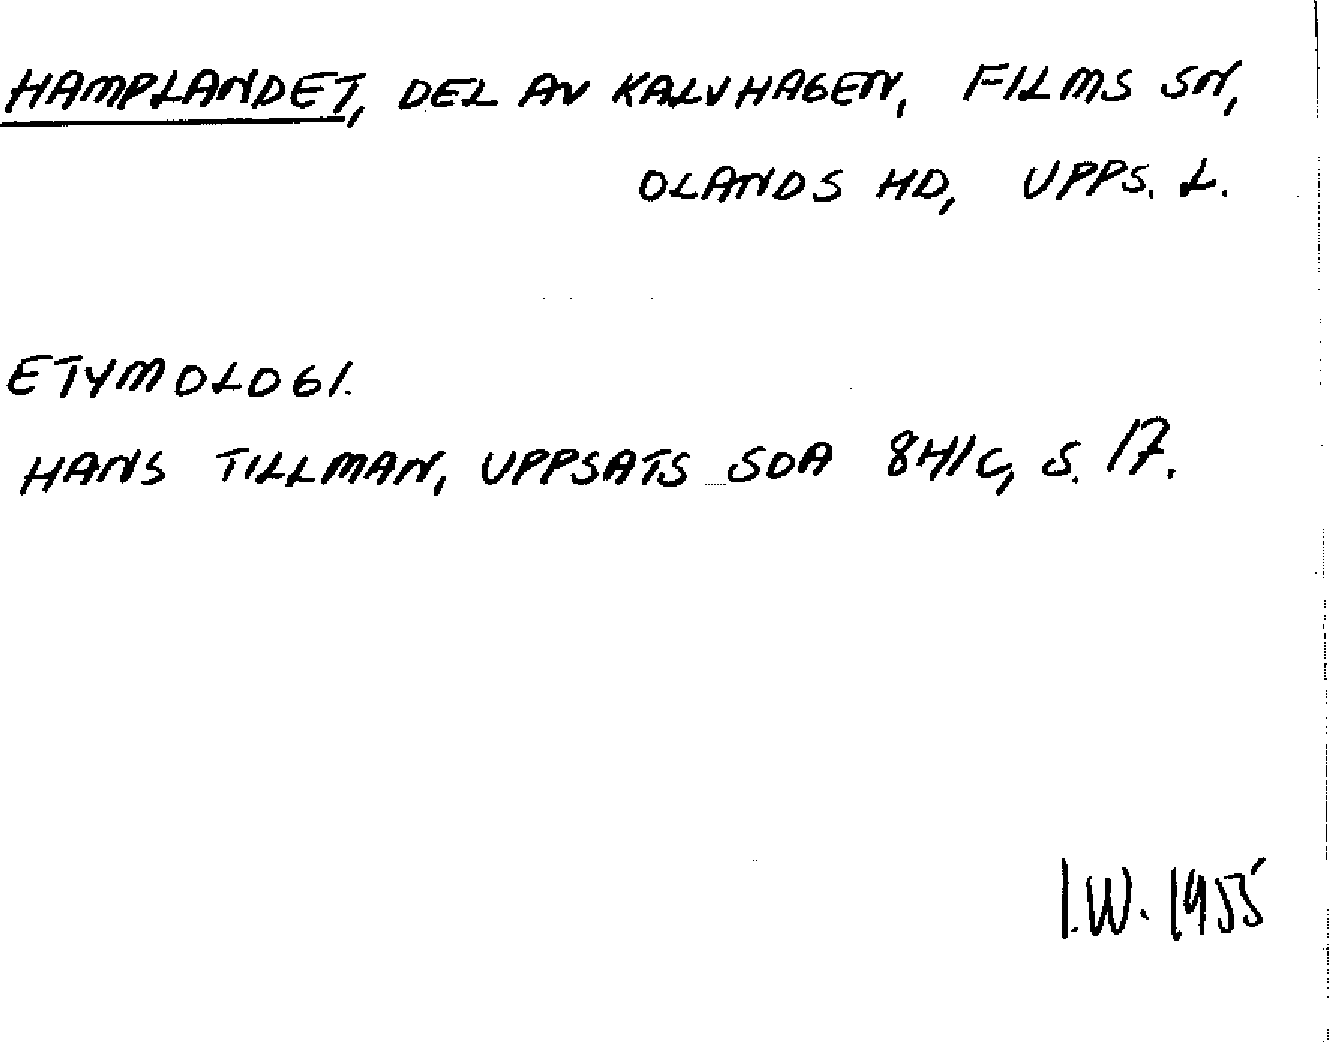 HAMPLANDET, DEL AV KALVHAGEN, FILMS SN,
OLANDS HD, UPPS. L.
ETYMOLOGI.
HANS TILLMAN, UPPSATS SOA 84/C, S. 17.
I.W. 1955